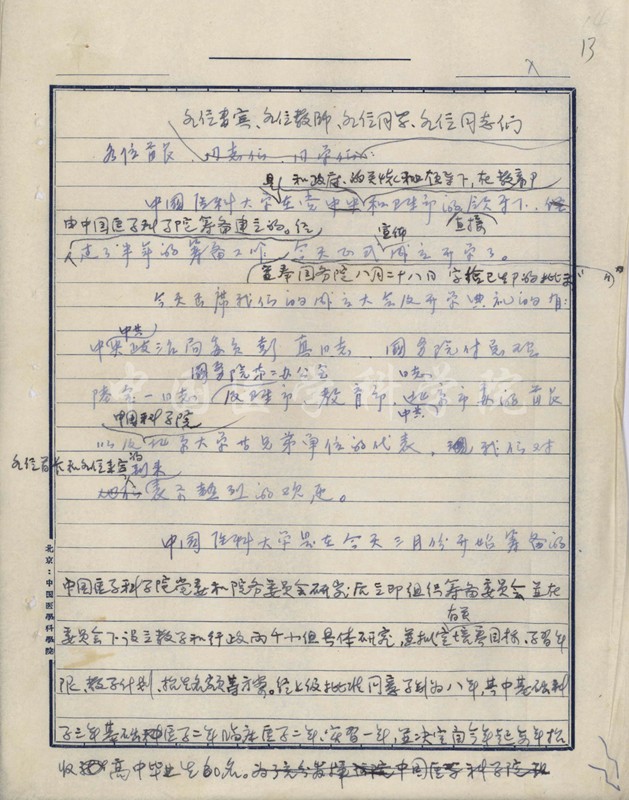 13
各位来宾、各位教师、各位同学、各位同志们
各位首长、同志们、同学们:
和政府的关怀和领导下,在教育部
中国医科大学在党中央和卫生部的领导下、
由中国医学科学院筹备建立的。经
直接
过了半年的筹备工作,今天正式成立开学了。
宣布
宣布国务院八月二十八日 字
今天出席我们的成立大会及开学典礼的有:
中共
中央政治局委员彭真同志、国务院付总理
国务院第二办公室 同志
陆定一同志、及卫生部、教育部、北京市委的首长
中国科学院
中共
以及北京大学等兄弟单位的代表、我们对
各位首长和各位来宾的到来
表示热烈的欢迎。
中国医科大学是在今天三月份开始筹备的
中国医学科学院党委和院务委员会研究后立即组织筹备委员会並在
委员会下设立教学和行政两个小组具体研究、並拟定培养目标、学习年
限、教学计划、招生名额等方案。经上级批准同意学制为八年,其中基础科
学三年基础医学二年临床医学二年、实习一年,並决定自今年起每年招
收 高中毕业生60名。为了充分发挥 中国医学科学院
北京:中国医学科学院
中国医学科学院